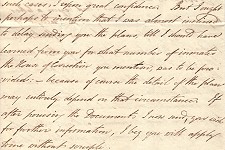 such cases I repose great confidence. But I ought
perhaps to mention that I was almost inclined
to delay sending you the plans, till I should have
learned from you for what number of inmates
the House of Correction you mention, was to be pro-
vided; — because of course the detail of the plans
may entirely depend on that circumstance. If
after perusing the Documents I now send, you wish
for further information, I beg you will apply
to me without scruple.